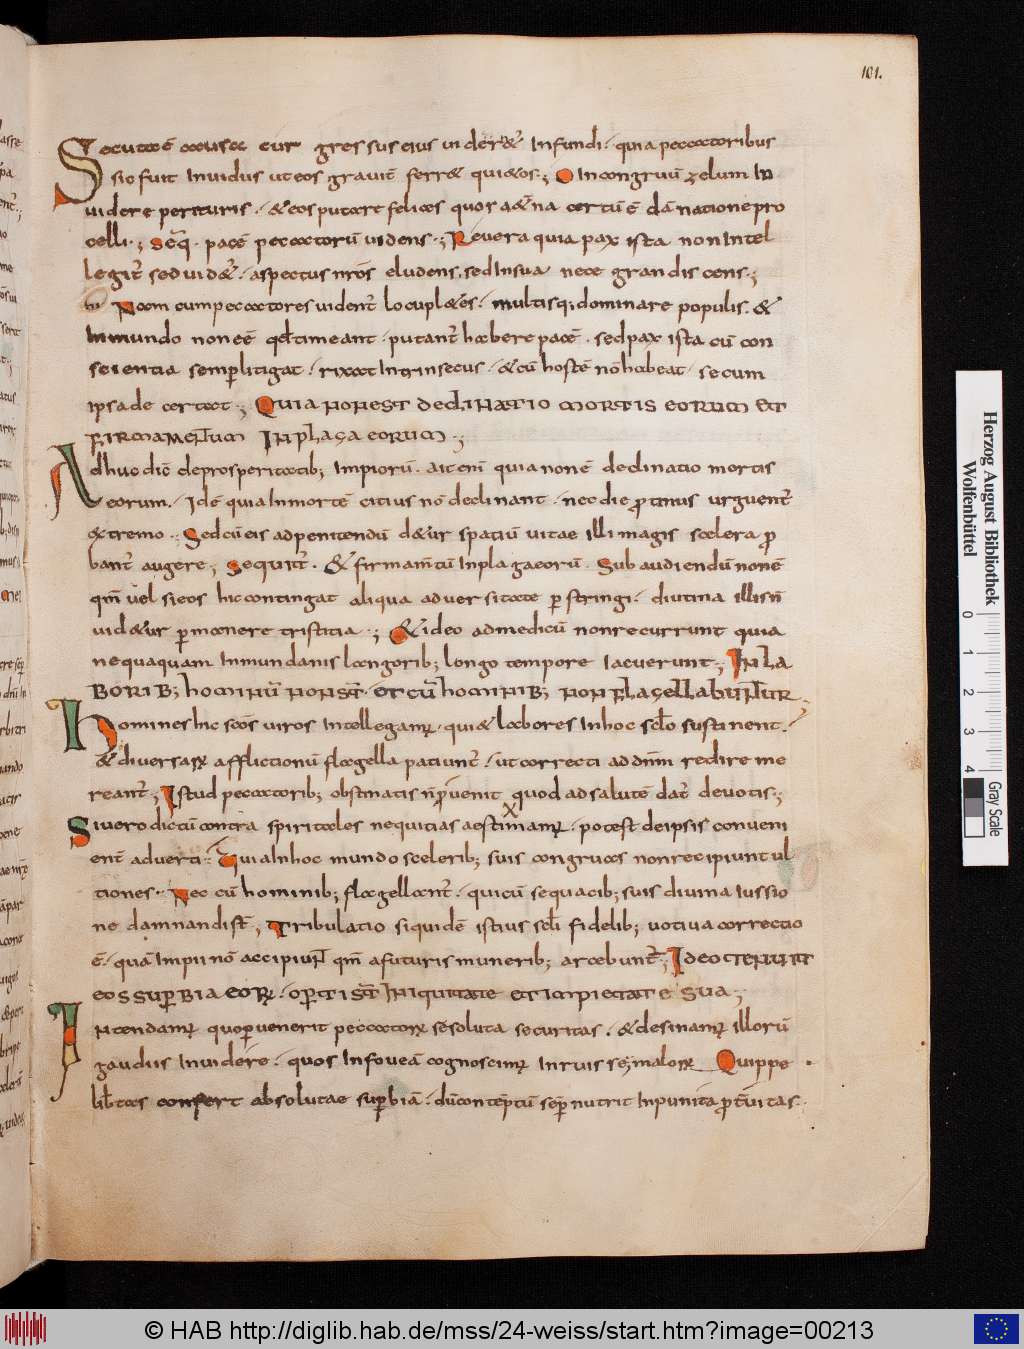 101.
Secutaē causa cur gressus eius uiderēt Infundi· quia peccatoribus
sic fuit Inuidus ut eos grauit ferr& qui&os·; O Incongruū zelum In
uidere perituris· & eos putare felices quor a&na certū ē dānatione pro
celli·; Seq· pacē peccatorū uidens·; Reuera quia pax ista non Intel
legit sed uid&· aspectus nrōs eludens, sed Insua nece grandis cens·;
Nam cum peccatores uident locupl&es· multisq; dominare populis· &
In mundo non eē qđ timeant· putant habere pacē· sed pax ista cū con
scientia semp litigat· rixat Intrinsecus· & cū hostē nō habeat· secum
ipsa de certat·; QUIA NON EST DECLINATIO MORTIS EORUM ET
FIRMAMENTUM IN PLAGA EORUM·;
Adhuc dic̄ de prosperitatib; Impiorū· ait enī quia non ē declinatio mortis
eorum· Idē quia In mortē citius nō declinant· nec die protinus urguent
extremo·. Sed cū eis ad penitendū d&ur spatiū uitae illi magis scelera pro
bant augere; Sequit· & firmam̄tū In plaga eorū· Subaudiendū non ē
qm̄ uel si eos hic contingat aliqua aduersitate pstringi· diutina illis n̄
uid&ur pmanere tristitia·; & ideo ad medicū non recurrunt quia
nequaquam In mundanis langorib; longo tempore iacuerunt·; IN LA
BORIB; HOMINŪ NON ST̄· ET CŪ HOMINIB; NON FLAGELLABUNTUR·
Homines hic scōs uiros Intellegam̄· qui & labores In hoc sclō sustinent·
& diuersarȝ afflictionū flagella patiunt· ut correcti ad dn̄m redire me
reant·; Istud peccatorib; obstinatis n̄ prouenit quod ad salutē dat deuotis·;
Si uero dictū contra spiritales nequitias aestimam̄· potest de ipsis conueni
ent aduerti·: Quia In hoc mundo scelerib; suis congruas non recipiunt ul
tiones· Nec cū hominib; flagellant· qui cū sequacib; suis diuina iussio
ne damnandi st̄; Tribulatio siquidē istius scl̄i fidelib; uotiua correctio
ē· quā Impii nō accipiunt qm̄ a futuris munerib; arcebunt·; IDEO TENUIT
EOS SUPBIA EORȝ· OPTI ST̄ INIQUITATE ET IMPIETATE SUA·;
Intendam̄ quo puenerit peccatorȝ se soluta securitas· & desinam̄ illorū
gaudiis Inuidere· quos In foueā cognoscim̄ In ruisse; malorȝ Quippe
lib̄tas confert absolutae supbiā· dū contēptū sēp nutrit Inpunita ptiuitas·
Herzog August Bibliothek
Wolfenbüttel
0 1 2 3 4
Gray Scale
© HAB http://diglib.hab.de/mss/24-weiss/start.htm?image=00213